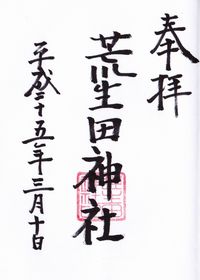 奉拝
荒生田神社
平成二十五年三月十日